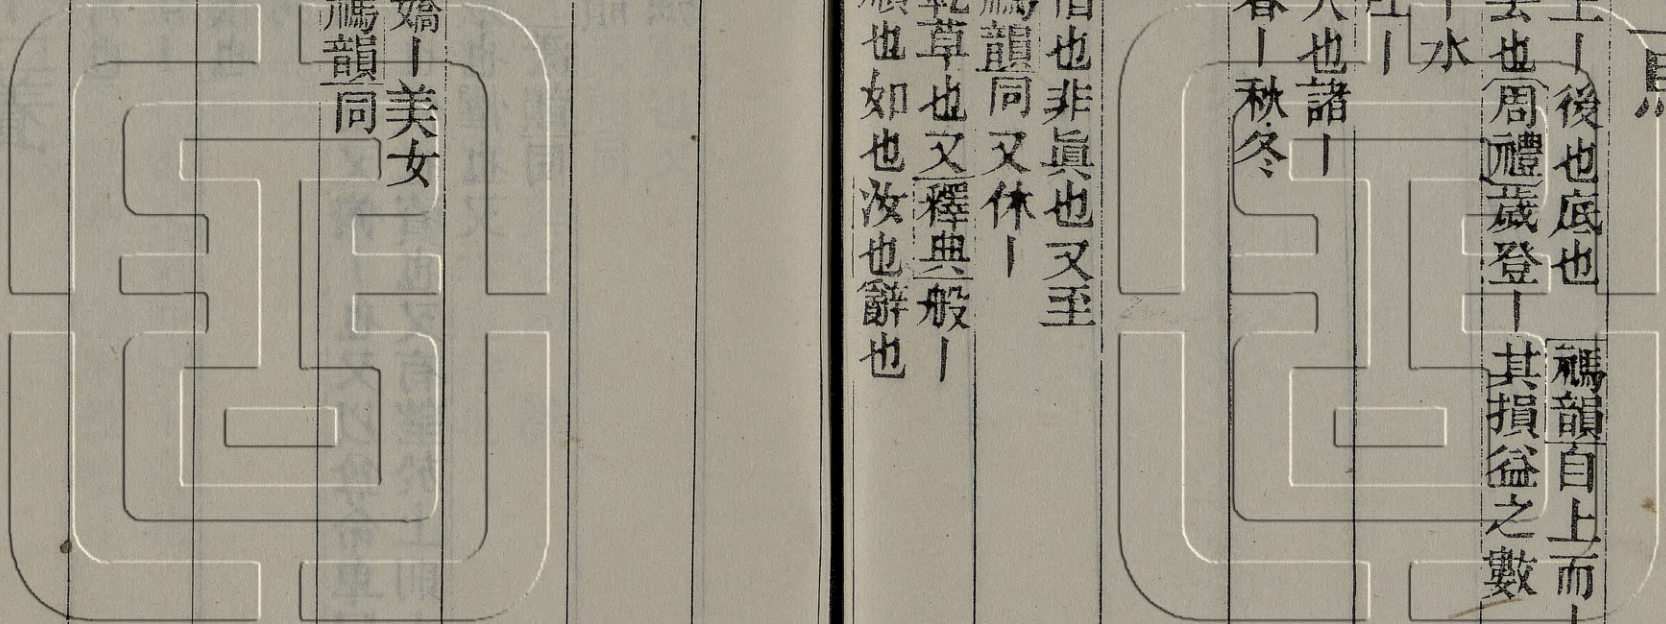 馬
上丨後也底也 禡韻自上而丨
去也周禮歲登丨其損益之數
水
丨
人也諸丨
春丨秋冬
借也非眞也又至
禡韻同又休丨
乾草也又釋典般丨
順也如也汝也辭也
嬌丨美女
禡韻同